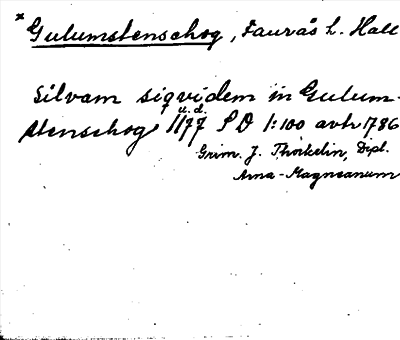 * Gulumstenschog, Faurås h. Hall
Silvam siqvidem in Gulum-
stenschog 1177 SD 1:100 avtr 1786
u.d.
Grim. J. Thorkelin, Dipl.
Arna-Magnæanum